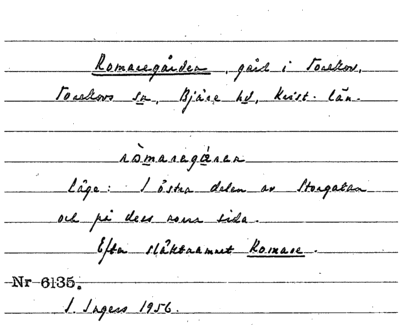 Romaregården, gård i Torekov,
Torekovs sn, Bjäre hd, Krist. län.
ròmaregǻren
läge: I östra delen av Storgatan
och på dess norra sida.
Efter släktnamnet Romare.
Nr 6135.
I. Ingers 1956.